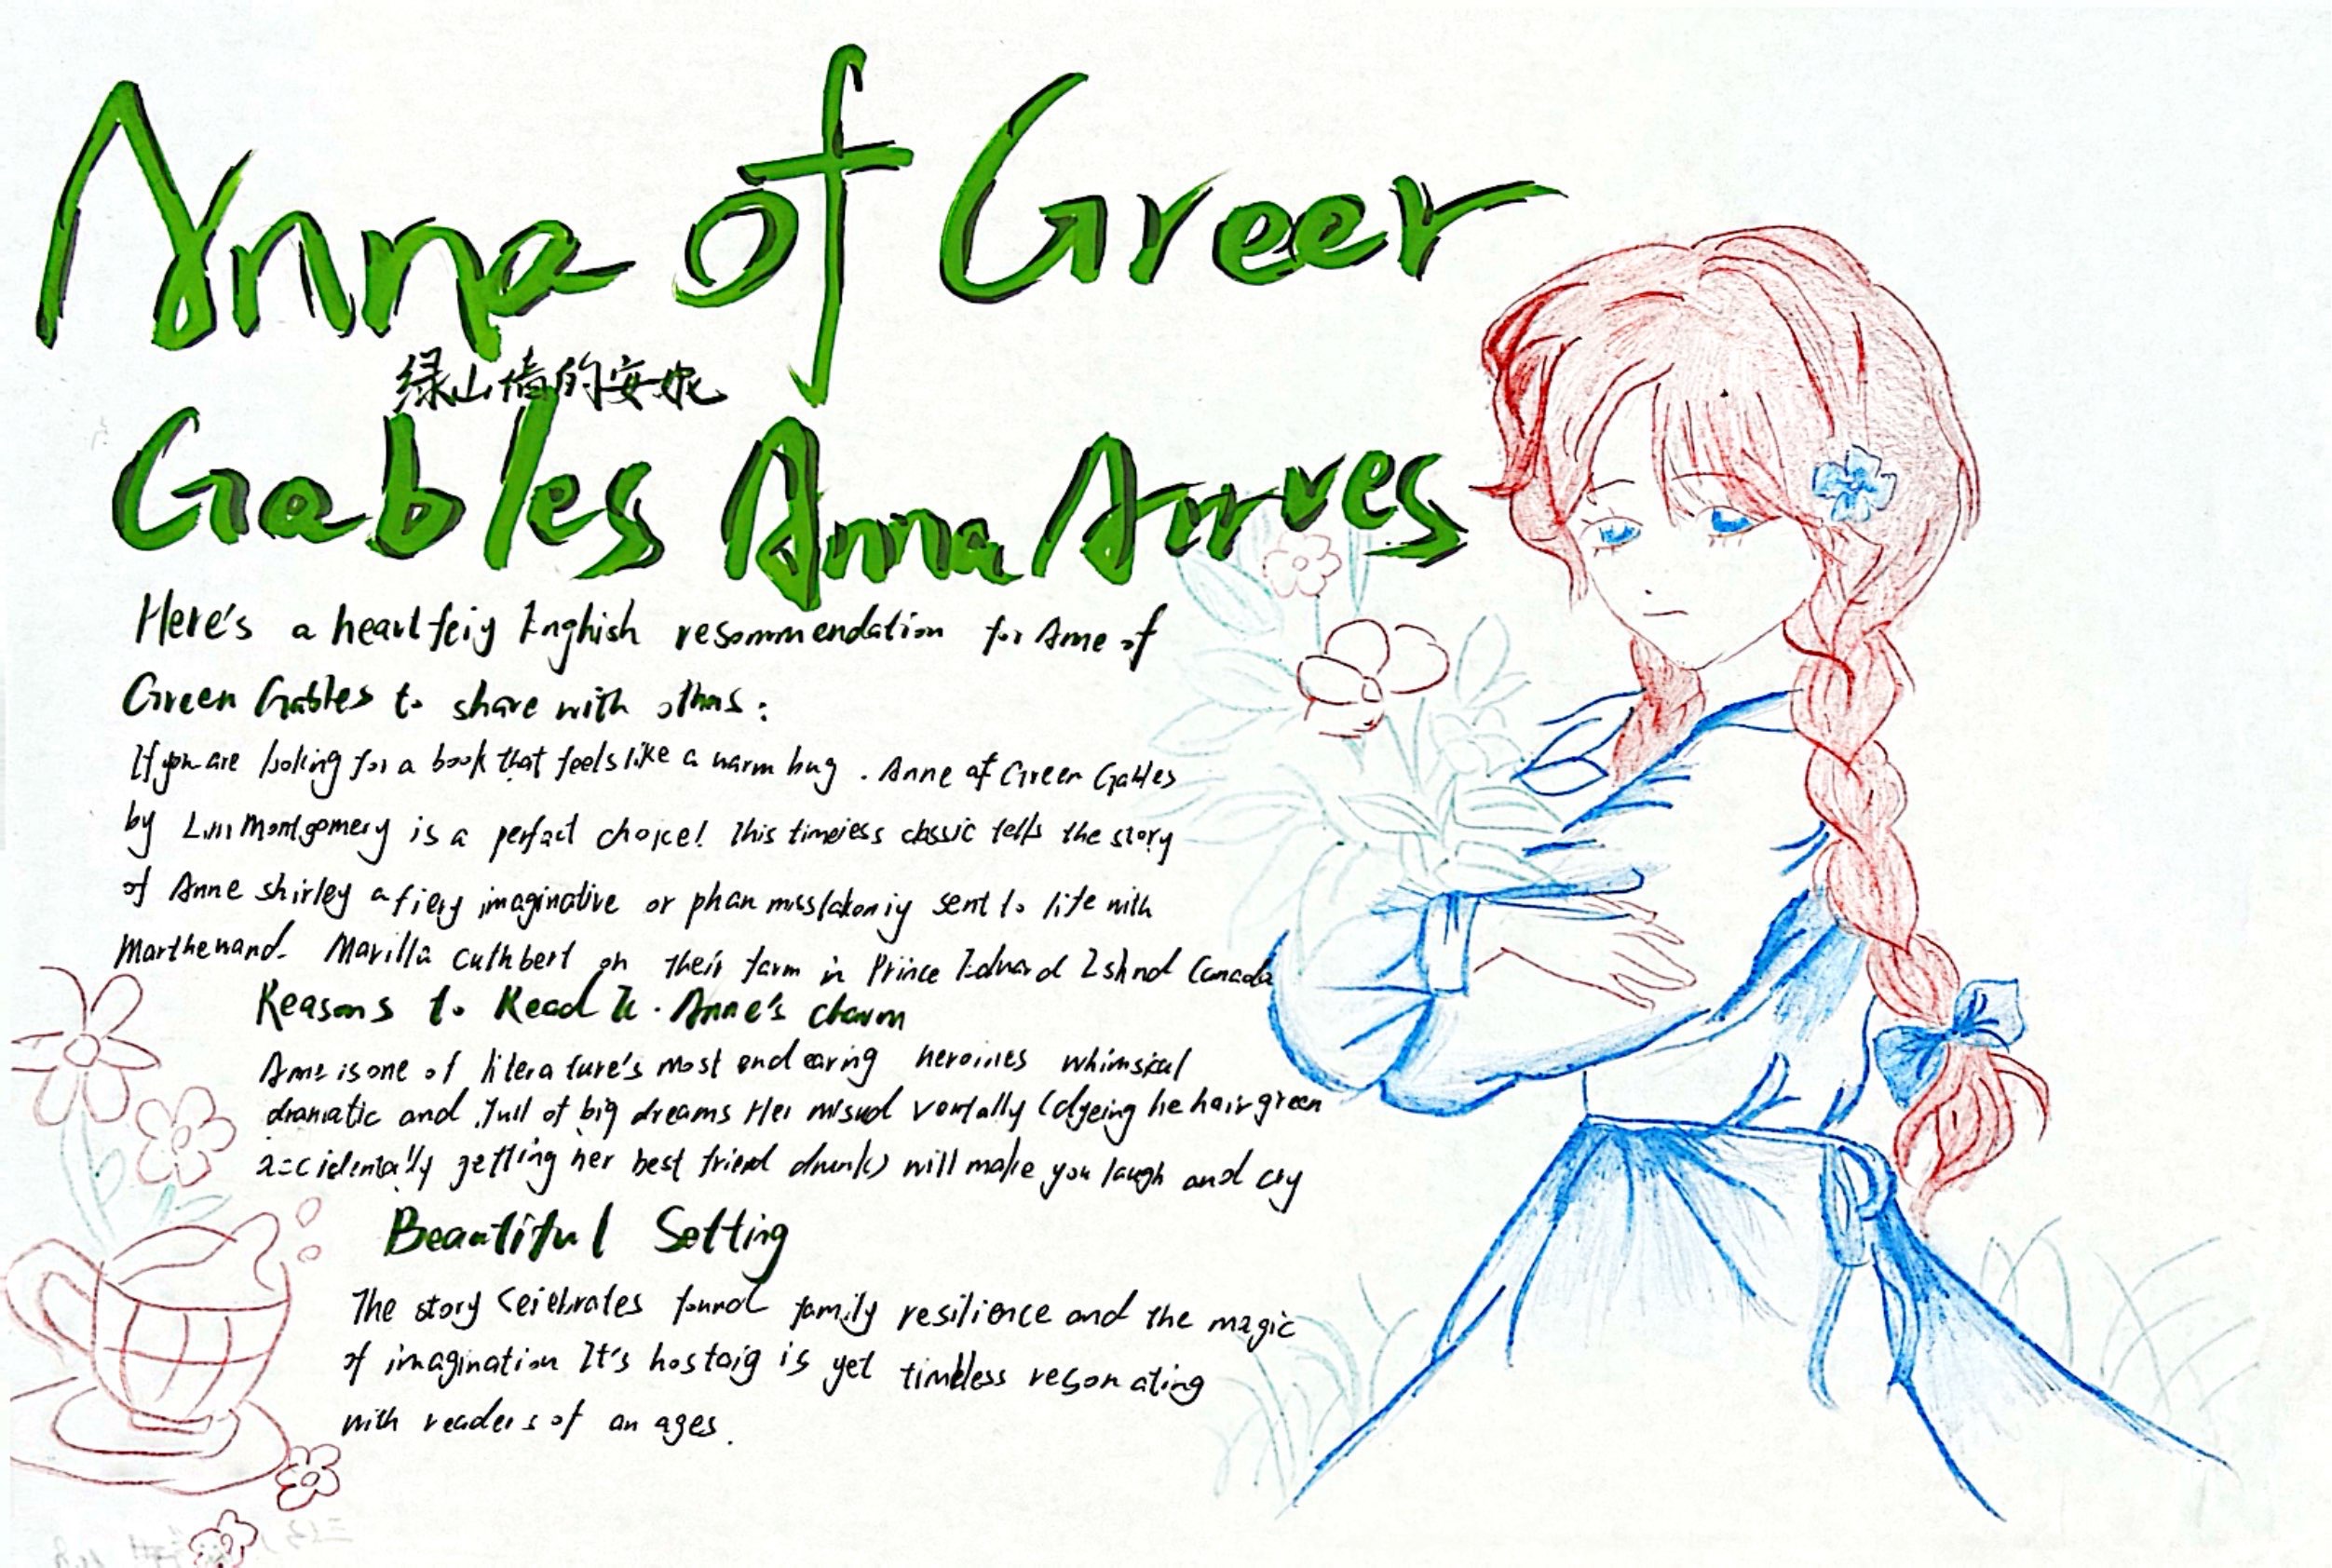 Anna of Greer
绿山墙的安妮
Gables Anna Arrves
Here's a heartfeiy Enghish resommendation for Anne of
Green Gables to share with others:
If you are looking for a book that feels like a warm bug. Anne of Green Gables
by L.m Montgomery is a perfact choice! This timeiess classic tells the story
of Anne shirley a fiery imaginative or phan misstakoniy sent to life with
Marthewand. Marilla Cuthbert on their farm in Prince Eduard Islnd Canada
Reasons to Read It. Anne's charm
Anne is one of litera ture's most end earing heroines whimsical
dramatic and .full of big dreams Her (dyeing he hair green
accidentally getting her best friend drunk) will make you laugh and cry
Beautiful Setting
The story Ceiebrates found family resilience and the magic
of imagination It's hostaig is yet timeless reson ating
with readers of an ages.